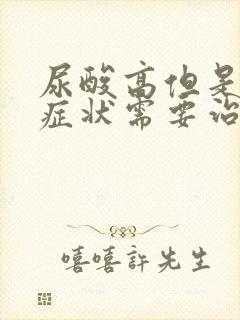 尿酸高但是
症状需要治
嘻嘻許先生